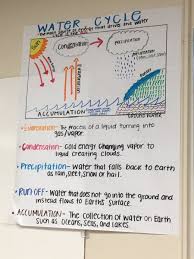 WATER CYCLE
Condensation
PRECIPITATION
Evaporation
ACCUMULATION
GROUND WATER
• Evaporation - The process of a liquid turning into
gas/vapor
• Condensation - cold energy changing vapor to
liquid creating clouds.
• Precipitation - water that falls back to earth
as rain, sleet, snow or hail.
• RUN OFF - Water that does not go into the ground and
instead flows to Earth's surface.
• ACCUMULATION - The collection of water on Earth
such as oceans, seas, and lakes.